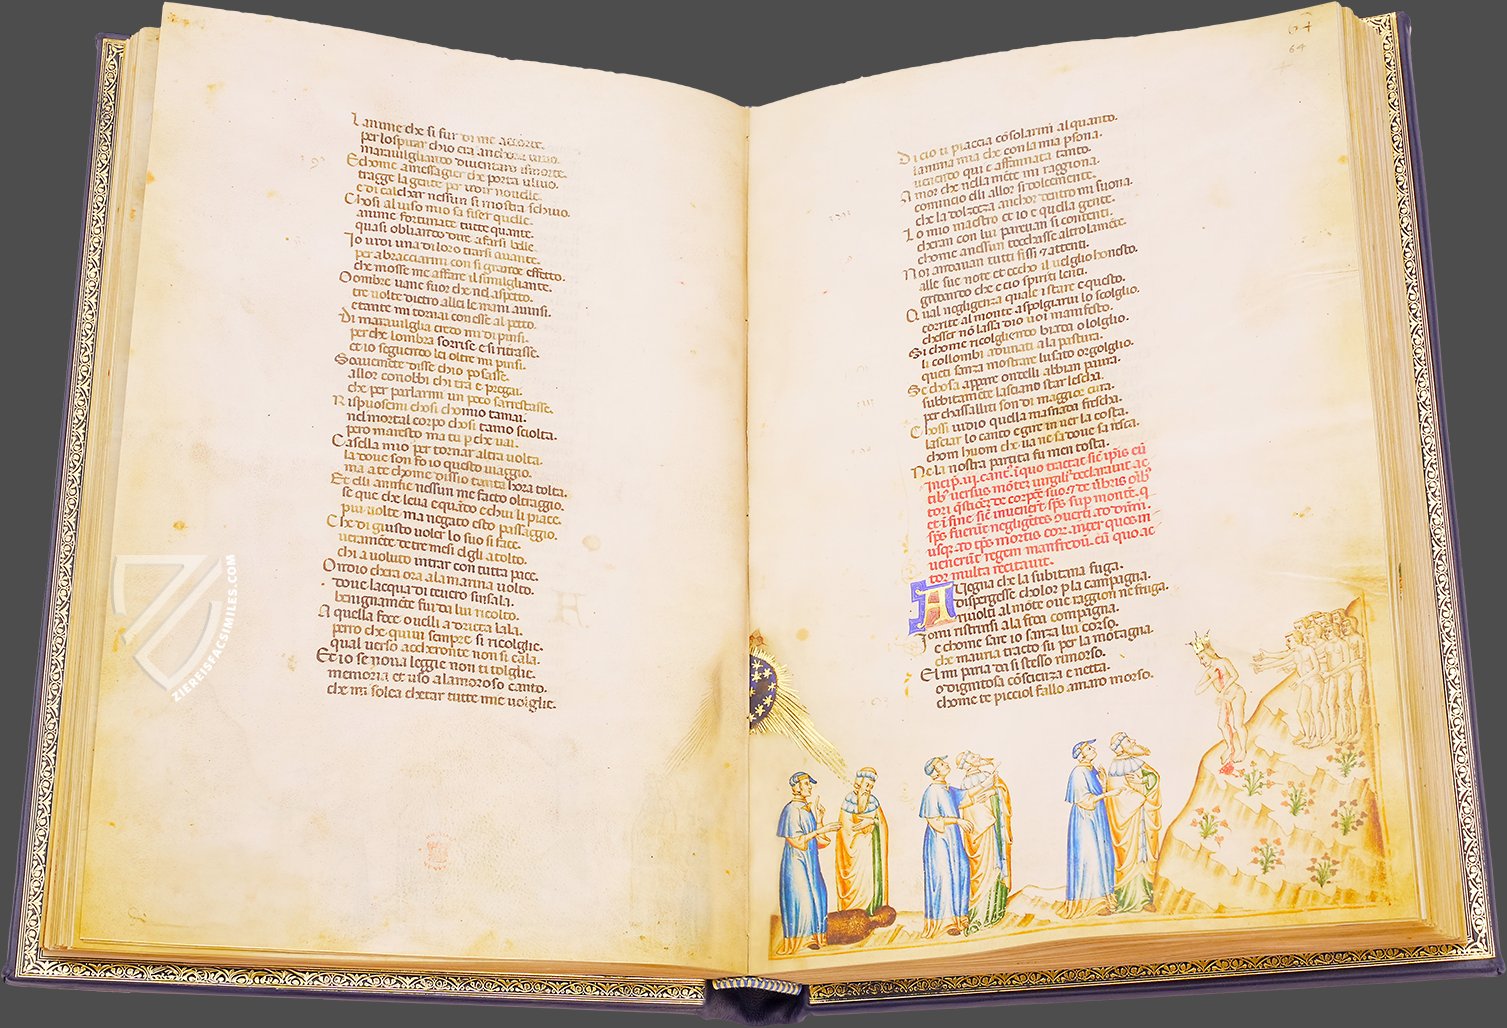 L anime che si fur di me accorte.
per lo spirar chio era anchora vivo.
maravigliando diventaro smorte.
E chome a messagier che porta ulivo.
tragge la gente per udir novelle.
e di calchar nessun si mostra schivo.
C hosi al viso mio sa fiser quelle.
anime fortunate tutte quante.
quasi obliando dire a farsi belle.
Io vidi una di loro trarsi avante.
per abracciarmi con si grande effetto.
che mosse me affare il simigliante.
O ombre vane fuor che nel aspetto.
tre volte dietro allei le mani avinsi.
e tante mi tornai con esse al petto.
Di maraviglia credo mi dipinsi.
per che lombra sorrise e si ritrasse.
et io seguendo lei oltre mi pinsi.
Soavemente disse chio posasse.
allor conobbi chi era e pregai.
che per parlarmi un poco sarrestasse.
Rispuosemi chosi chomio tamai.
nel mortal corpo chosi tamo sciolta.
pero maresto ma tu p che vai.
Casella mio per tornar altra volta.
la dove son fo io questo viaggio.
ma a te chome dissio tanta hora tolta.
Et elli amme nessun me facto oltraggio.
se que che leva e quando e chui li piace.
piu volte ma negato esto passaggio.
Che di giusto voler lo suo si face.
veramente de tre mesi elgli a tolto.
chi a voluto intrar con tutta pace.
Ondio chera ora a la marina volto.
dove lacqua di tevero sinsala.
benignamente fiu da lui ricolto.
A quella foce ovelli a dricta lala.
perro che quivi sempre si ricolglie.
qual verso accheronte non si cala.
Et io se nova legge non ti tolglie.
memoria et uso alamoroso canto.
che mi solea chetar tutte mie volglie.
64
64
Di cio ti piaccia cōsolarmi alquanto.
lanima mia che con la mia psona.
venendo qui e affannata tanto.
Amor che nella mēte mi raggiona.
comincio elli allor si dolcemente.
che la dolzezza anchor dentro mi suona.
Lo mio maestro et io e quella gente.
cheran con lui parevan si contenti.
chome anessun tocchasse altro la mēte.
Noi andavan tutti fissi et attenti.
alle sue note et eccho il velglio honesto.
gridando che e cio spiriti lenti.
Qual negligenza quale istare e questo.
corrite al monte aspolgiarvi lo scolglio.
chesser nō lassa dio voi manifesto.
Si chome ricolgliendo biada o lolglio.
li collombi adunati a la pastura.
queti sanza mostrare lusato orgolglio.
Se chosa appare ondelli abbian paura.
subbitamēte lasciano star lescha.
per chassalliti son di maggior cura.
Chossi vidio quella masnada frescha.
lasciar lo canto e gire in ver la costa.
chom huom che va ne sa dove sa resca.
Ne la nostra partita fu men tosta.
Incip. iii. canē. i quo tractat sic ipis eū
tib' versus mōtez virgili' declaravit ac
tori qstionez de corpore suo et de ūbris
et ī fine sic invenerūt sps sup monte. q
sps fuerūt negligētes
usq. ad tps mortis
venerūt regem manfredū. cū quo ac
tor multa recitavit.
AVegna che la subitana fuga.
dispergesse cholor p la campagna.
rivolti al mōte ove raggion ne fruga.
Io mi ristrinsi ala fida compagna.
e chome sare io sanza lui corso.
che mavria tracto su per la mōtagna.
El mi paria da si stesso rimorso.
o dignitosa cōscienza e netta.
chome te picciol fallo amaro morso.
ZIEREISFACSIMILES.COM